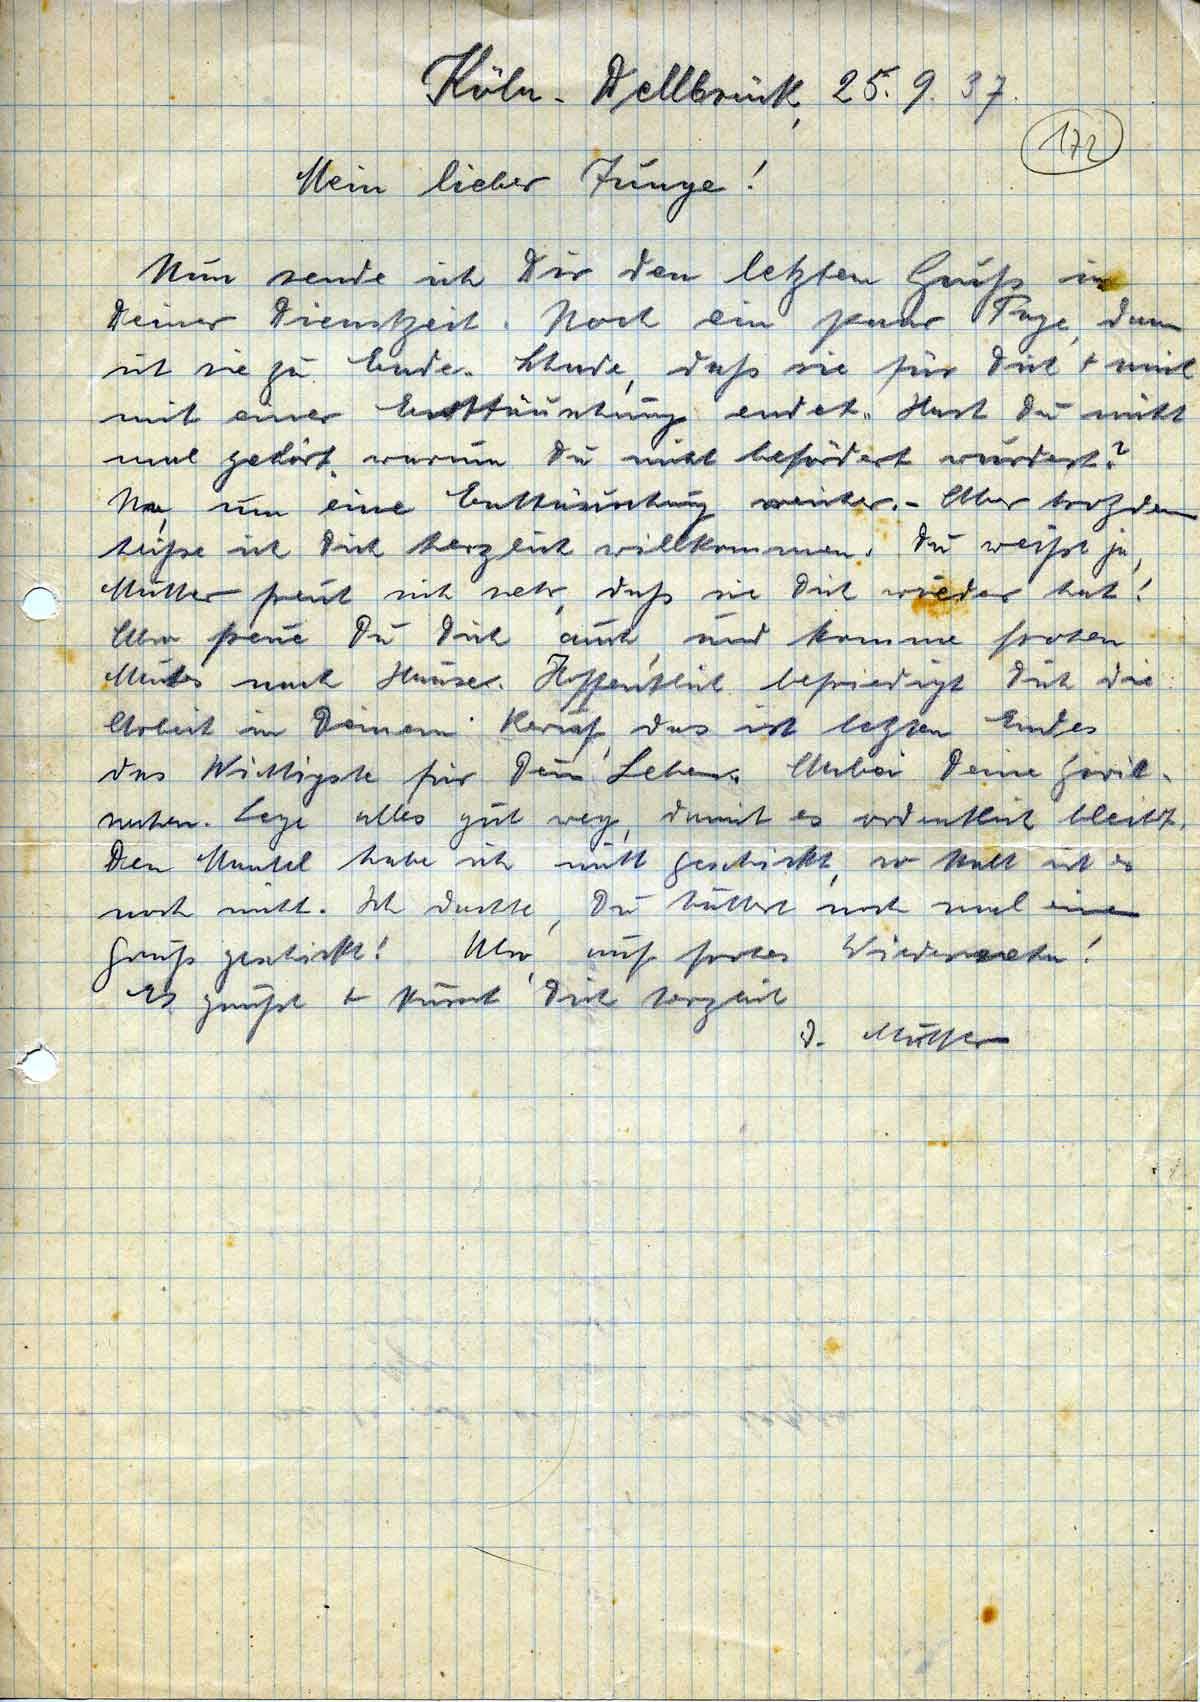 Köln-Dellbrück, 25. 9. 37.
172
Mein lieber Junge!
Nun sende ich Dir den letzten Gruß in
Deiner Dienstzeit. Noch ein paar Tage, dann
ist sie zu Ende. Schade, daß sie für Dich + mich
mit einer Enttäuschung endet. Hast Du nicht
mal gehört, warum Du nicht befördert wurdest?
Na, um eine Enttäuschung weiter. - Aber trotzdem
heiße ich Dich herzlich willkommen. Du weißt ja,
Mutter freut sich sehr, daß sie Dich wieder hat!
Also freue Du Dich auch, und komme frohen
Mutes nach Hause. Hoffentlich befriedigt Dich die
Arbeit in Deinem Beruf, das ist letzten Endes
das Wichtigste für Dein Leben. Anbei Deine Zivil-
sachen. Lege alles gut weg, damit es ordentlich bleibt.
Den Mantel habe ich nicht geschickt, so kalt ist es
noch nicht. Ich dachte, Du hättest noch mal einen
Gruß geschickt! Also, auf frohes Wiedersehn!
Es grüßt + küsst Dich herzlich
D. Mutter